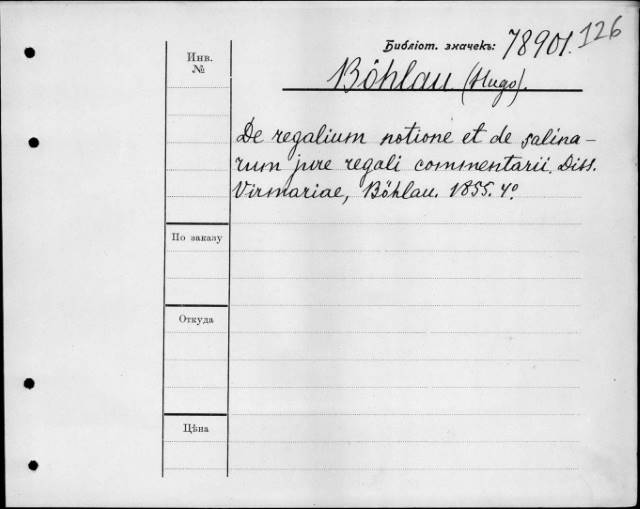 126
Библіот. значекъ: 78901.
Инв. №
Böhlau. (Hugo).
De regalium notione et de salina-
rum jure regali commentarii. Diss.
Virmariae, Böhlau. 1855. 4°.
По заказу
Откуда
Цѣна